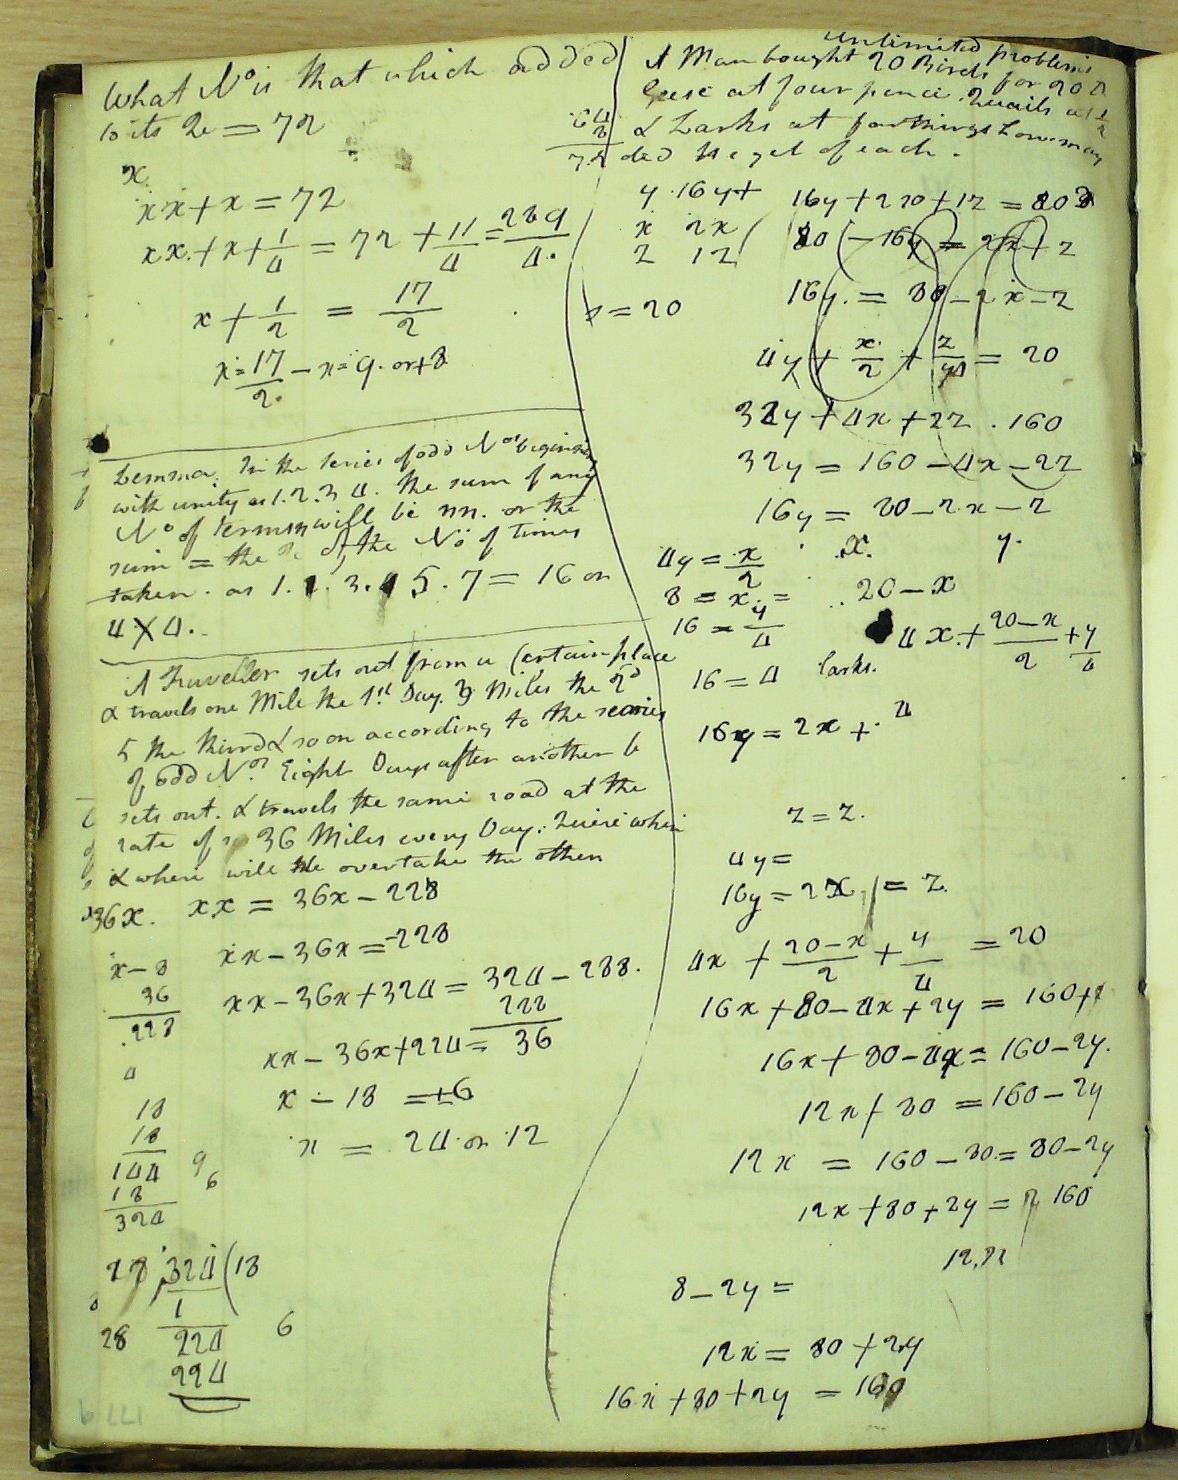 What No is that which added
to its 2e = 72
x
xx + x = 72
xx + x + 1/4 = 72 + 11/4 = 289/4
x + 1/2 = 17/2
x = 17/2 - x = 9. or + 8
64
8
72
Lemma. In the series of odd Nos beginning
with unity as 1. 2. 3 4. the sum of any
No of terms n will be nn. or the
sum = the of the No of times
taken. as 1. 3. 5. 7 = 16 or
4 X 4.
A Traveller sets out from a Certain place
& travels one Mile the 1st Day. 3 Miles the 2d
5 the third & so on according to the series
of odd Nos. Eight Days after another b
sets out. & travels the same road at the
rate of 36 Miles every Day. Quere when
& where will he overtake the other
36x. xx = 36x - 288
x - 8 xx - 36x = -288
36
288
xx - 36x + 324 = 324 - 288.
288
36
xx - 36x + 324 = 36
x - 18 = ±6
x = 24 or 12
18
18
144
18
324
9
6
324 (18
1
28 224 6
224
unlimited problems
A Man bought 20 Birds for 20 D
Geese at four pence. Quails at 1/2
& Larks at farthings How many
did he get of each.
y 16y +
x 2x
z 1z
= 20
80 - 16y = 2x + z
16y. = 80 - 2x - z
4y + x/2 + z/4 = 20
32y + 4x + 2z . 160
32y = 160 - 4x - 2z
16y = 80 - 2x - z
4y = x/2 x. y.
8 = x. = 20 - x
16 = y/4 4x. + 20-x/2 + y/4
16 = 4 larks.
16y = 2x + . 4
z = z.
4y =
16y = 2x = z.
4x + 20-x/2 + y/4 = 20
16x + 80 - 4x + 2y = 160
16x + 80 - 4x = 160 - 2y.
12x + 80 = 160 - 2y
12x = 160 - 80 = 80 - 2y
12x + 80 + 2y = 160
8 - 2y =
12x = 80 + 2y
16x + 80 + 2y = 160